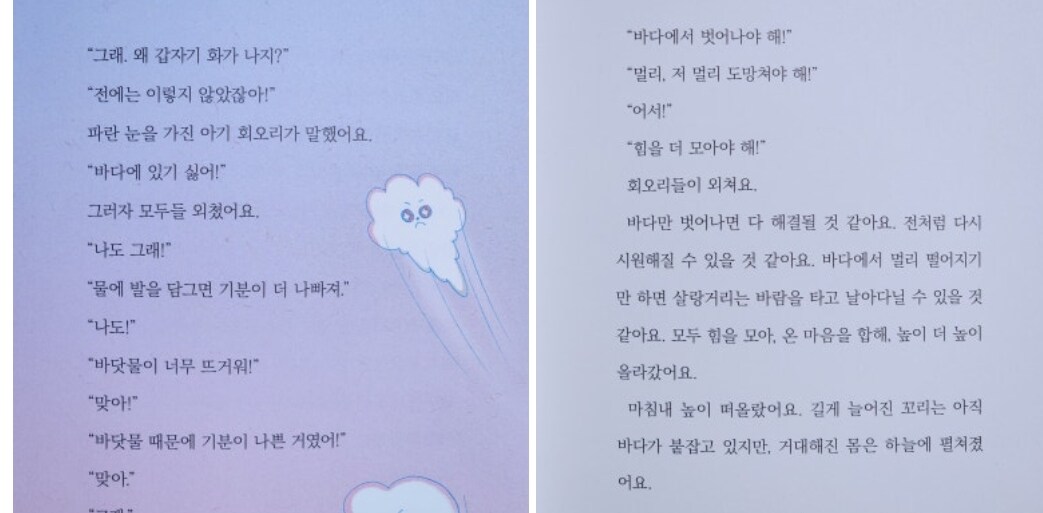 “그래. 왜 갑자기 화가 나지?”
“전에는 이렇지 않았잖아!”
파란 눈을 가진 아기 회오리가 말했어요.
“바다에 있기 싫어!”
그러자 모두들 외쳤어요.
“나도 그래!”
“물에 발을 담그면 기분이 더 나빠져.”
“나도!”
“바닷물이 너무 뜨거워!”
“맞아!”
“바닷물 때문에 기분이 나쁜 거였어!”
“맞아.”
“바다에서 벗어나야 해!”
“멀리, 저 멀리 도망쳐야 해!”
“어서!”
“힘을 더 모아야 해!”
회오리들이 외쳐요.
바다만 벗어나면 다 해결될 것 같아요. 전처럼 다시
시원해질 수 있을 것 같아요. 바다에서 멀리 떨어지기
만 하면 살랑거리는 바람을 타고 날아다닐 수 있을 것
같아요. 모두 힘을 모아, 온 마음을 합해, 높이 더 높이
올라갔어요.
마침내 높이 떠올랐어요. 길게 늘어진 꼬리는 아직
바다가 붙잡고 있지만, 거대해진 몸은 하늘에 펼쳐졌
어요.